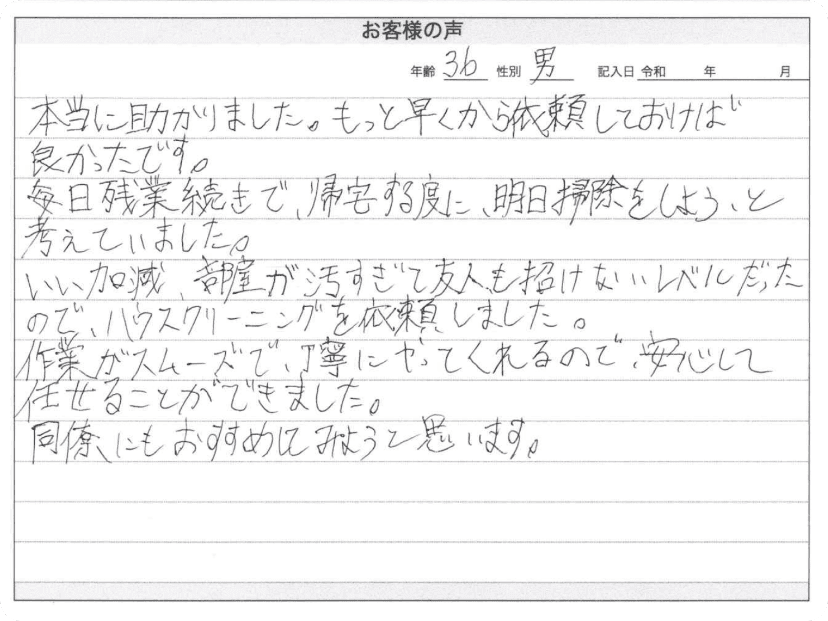 お客様の声
年齢 36 性別 男 記入日 令和 年 月
本当に助かりました。もっと早くから依頼しておけば
良かったです。
毎日残業続きで、帰宅する度に、明日掃除をしよう、と
考えていました。
いい加減、部屋が汚すぎて友人も招けないレベルだった
ので、ハウスクリーニングを依頼しました。
作業がスムーズで、丁寧にやってくれるので、安心して
任せることができました。
同僚にもおすすめしてみようと思います。